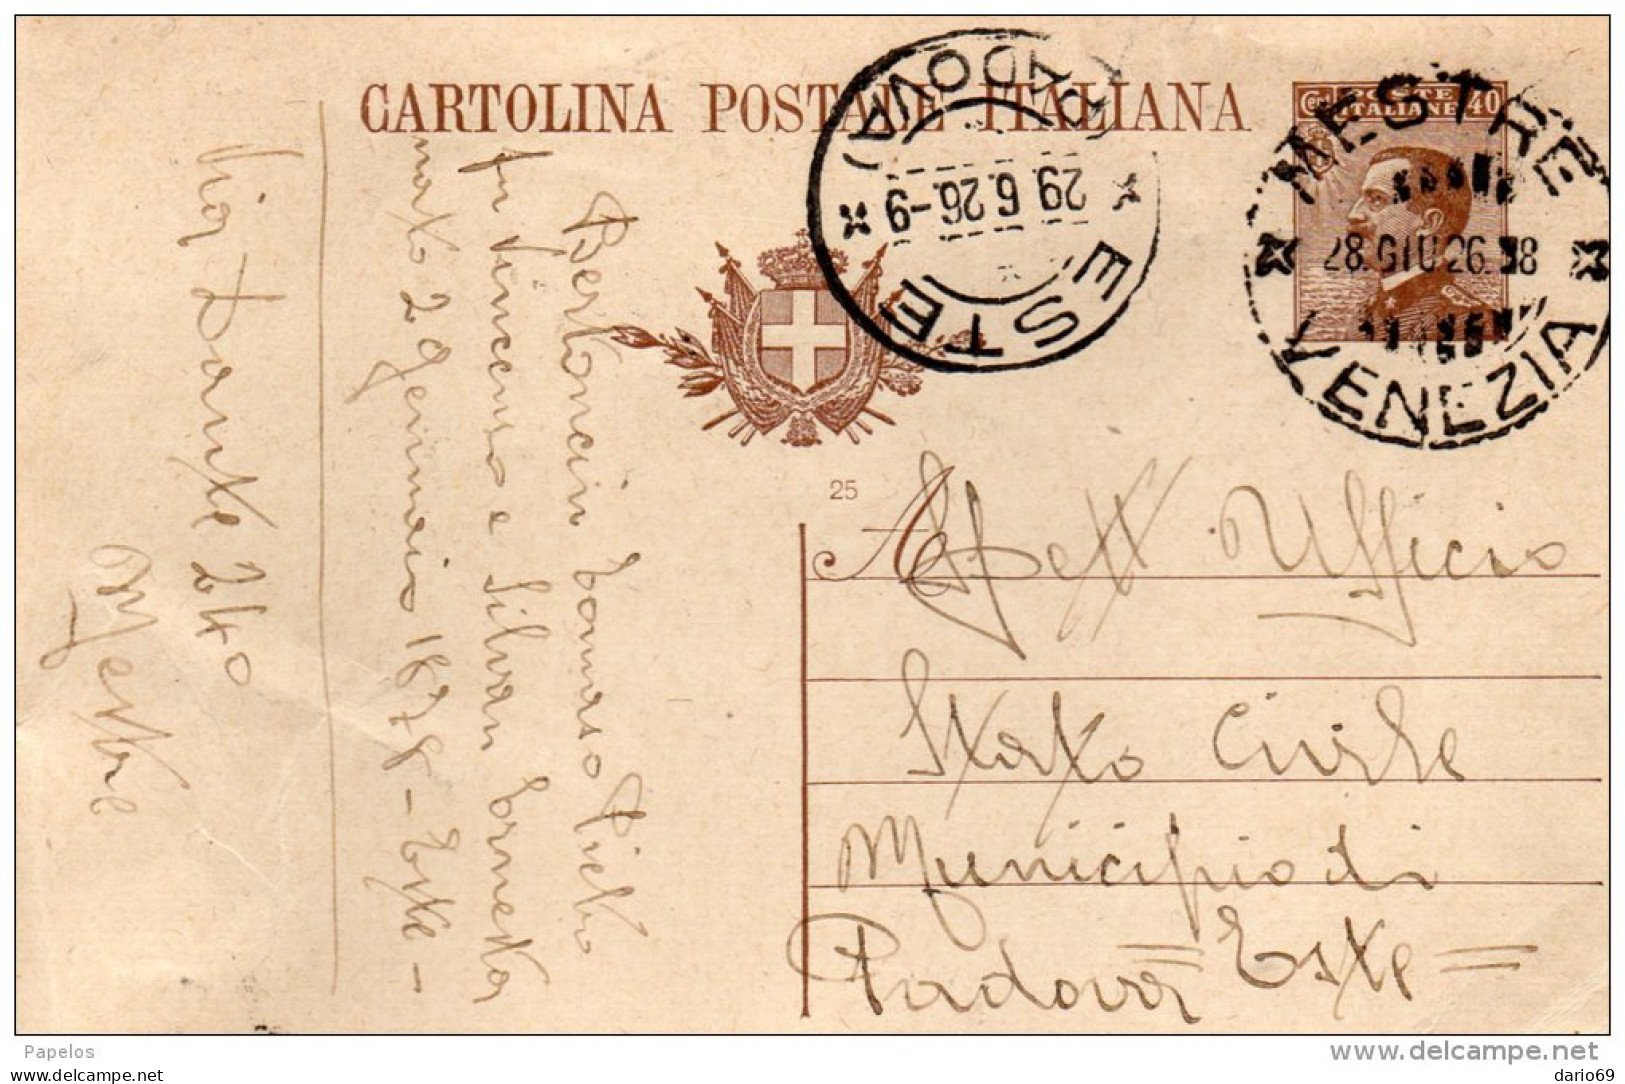 CARTOLINA POSTALE ITALIANA
Cent POSTE ITALIANE 40
MESTRE
28.GIU 26.18
VENEZIA
(PADOVA)
29.6.26.-9
ESTE
25
Spett Ufficio
Stato Civile
Municipio di
Padova = Este =
Bertoncin Tommaso Pietro
fu Vincenzo e Silvan Ernesta
nato 2 Gennaio 1878 - Este -
Via Dante 240
Mestre
Papelos
www.delcampe.net
dario69